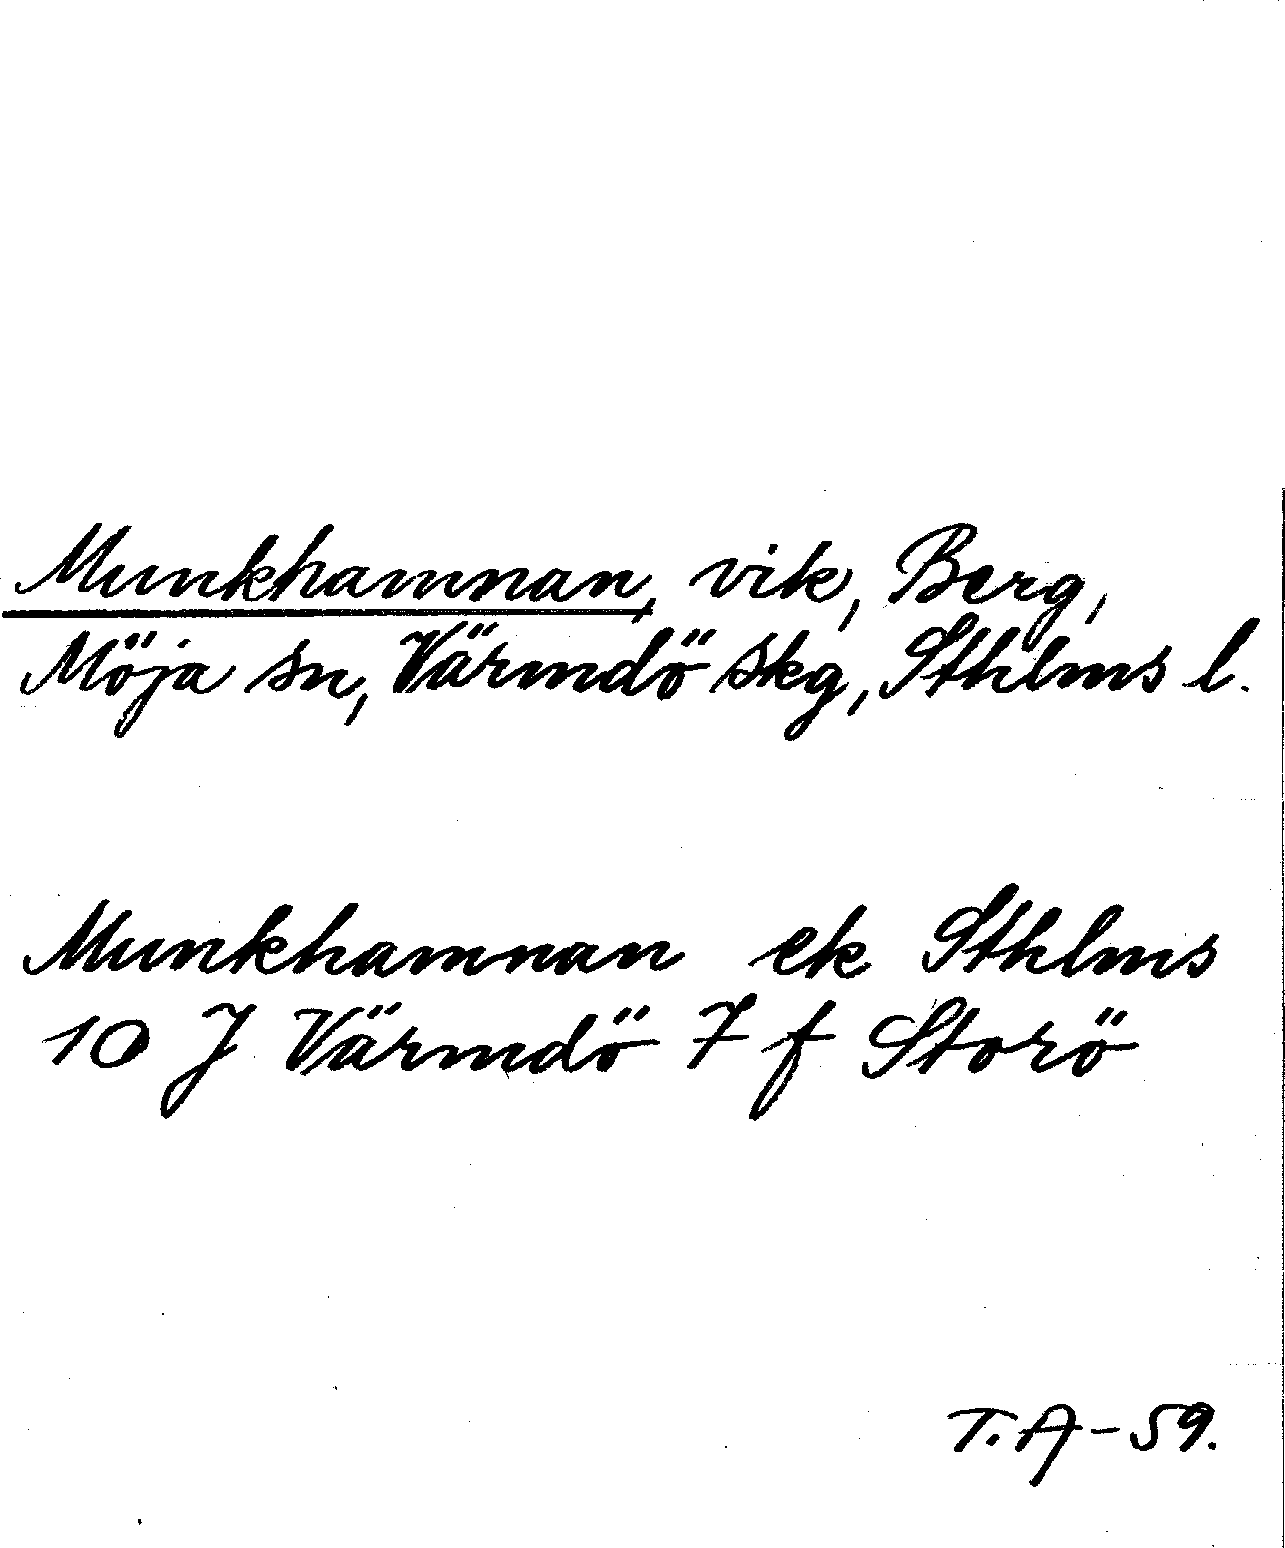 Munkhamnan, vik, Berg,
Möja sn, Värmdö skg, Sthlms l.
Munkhamnan ek Sthlms
10 J Värmdö 7 f Storö
T.A-59.